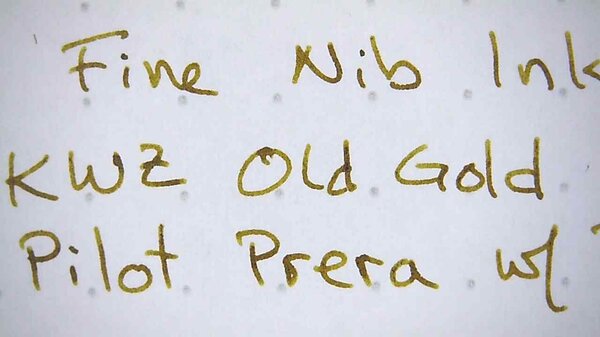 Fine Nib Ink
KWZ Old Gold
Pilot Prera w/